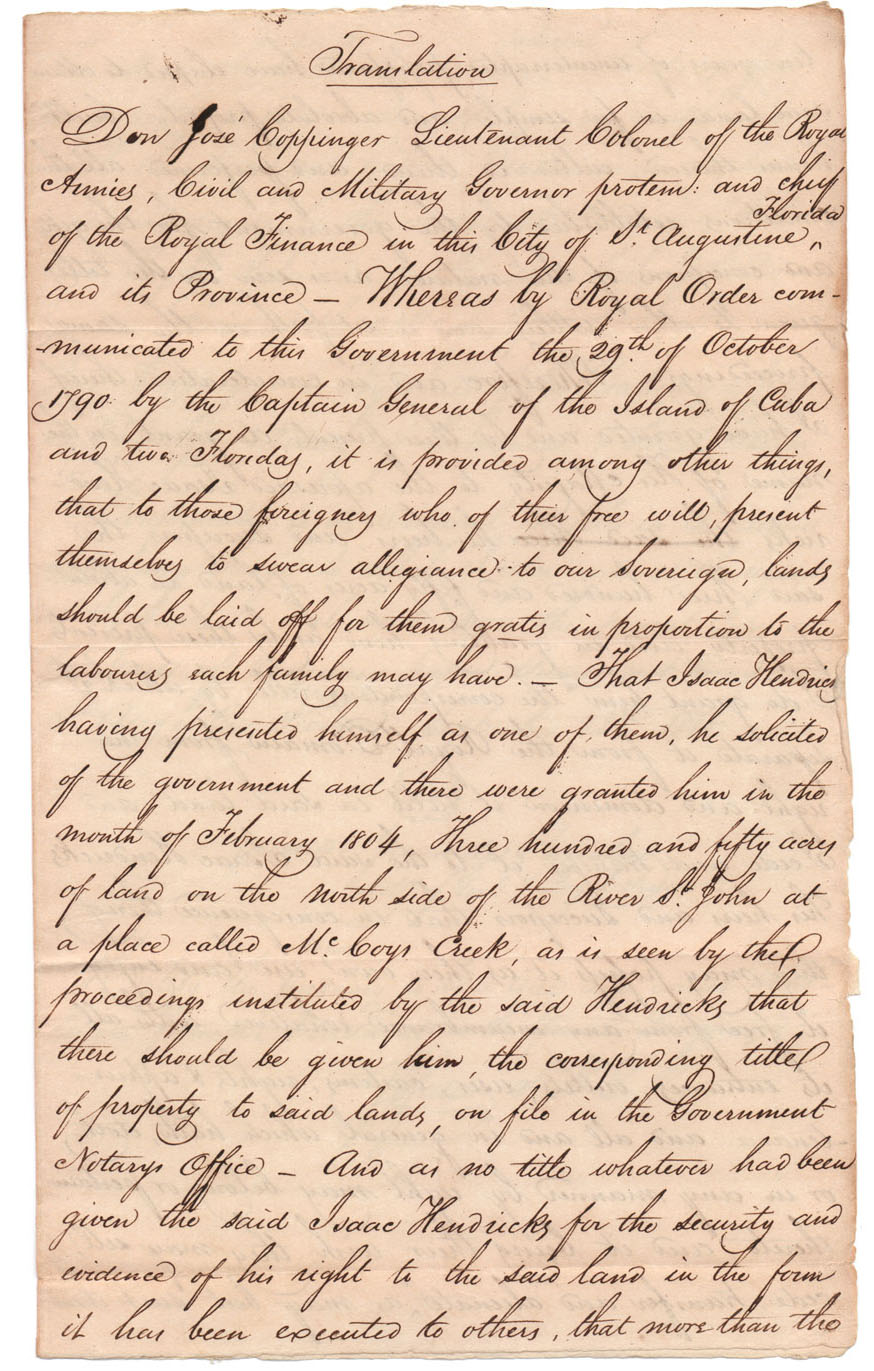 Translation
Don José Coppinger Lieutenant Colonel of the Royal
Armies, Civil and Military Governor protem: and chief
of the Royal Finance in this City of St. Augustine, Florida
and its Province — Whereas by Royal Order com-
-municated to this Government the 29th of October
1790 by the Captain General of the Island of Cuba
and two Floridas, it is provided among other things,
that to those foreigners who of their free will, present
themselves to swear allegiance to our Sovereign, lands
should be laid off for them gratis in proportion to the
labourers each family may have. — That Isaac Hendricks
having presented himself as one of them, he solicited
of the government and there were granted him in the
month of February 1804, Three hundred and fifty acres
of land on the north side of the River St. John at
a place called Mc. Coys Creek, as is seen by the
proceedings instituted by the said Hendricks that
there should be given him, the corresponding title
of property to said lands, on file in the Government
Notarys Office — And as no title whatever had been
given the said Isaac Hendricks for the security and
evidence of his right to the said land in the form
it has been executed to others, that more than the